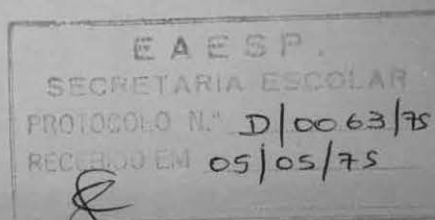 EAESP.
SECRETARIA ESCOLAR
PROTOCOLO N.º D/0063/75
RECEBIDO EM 05/05/75